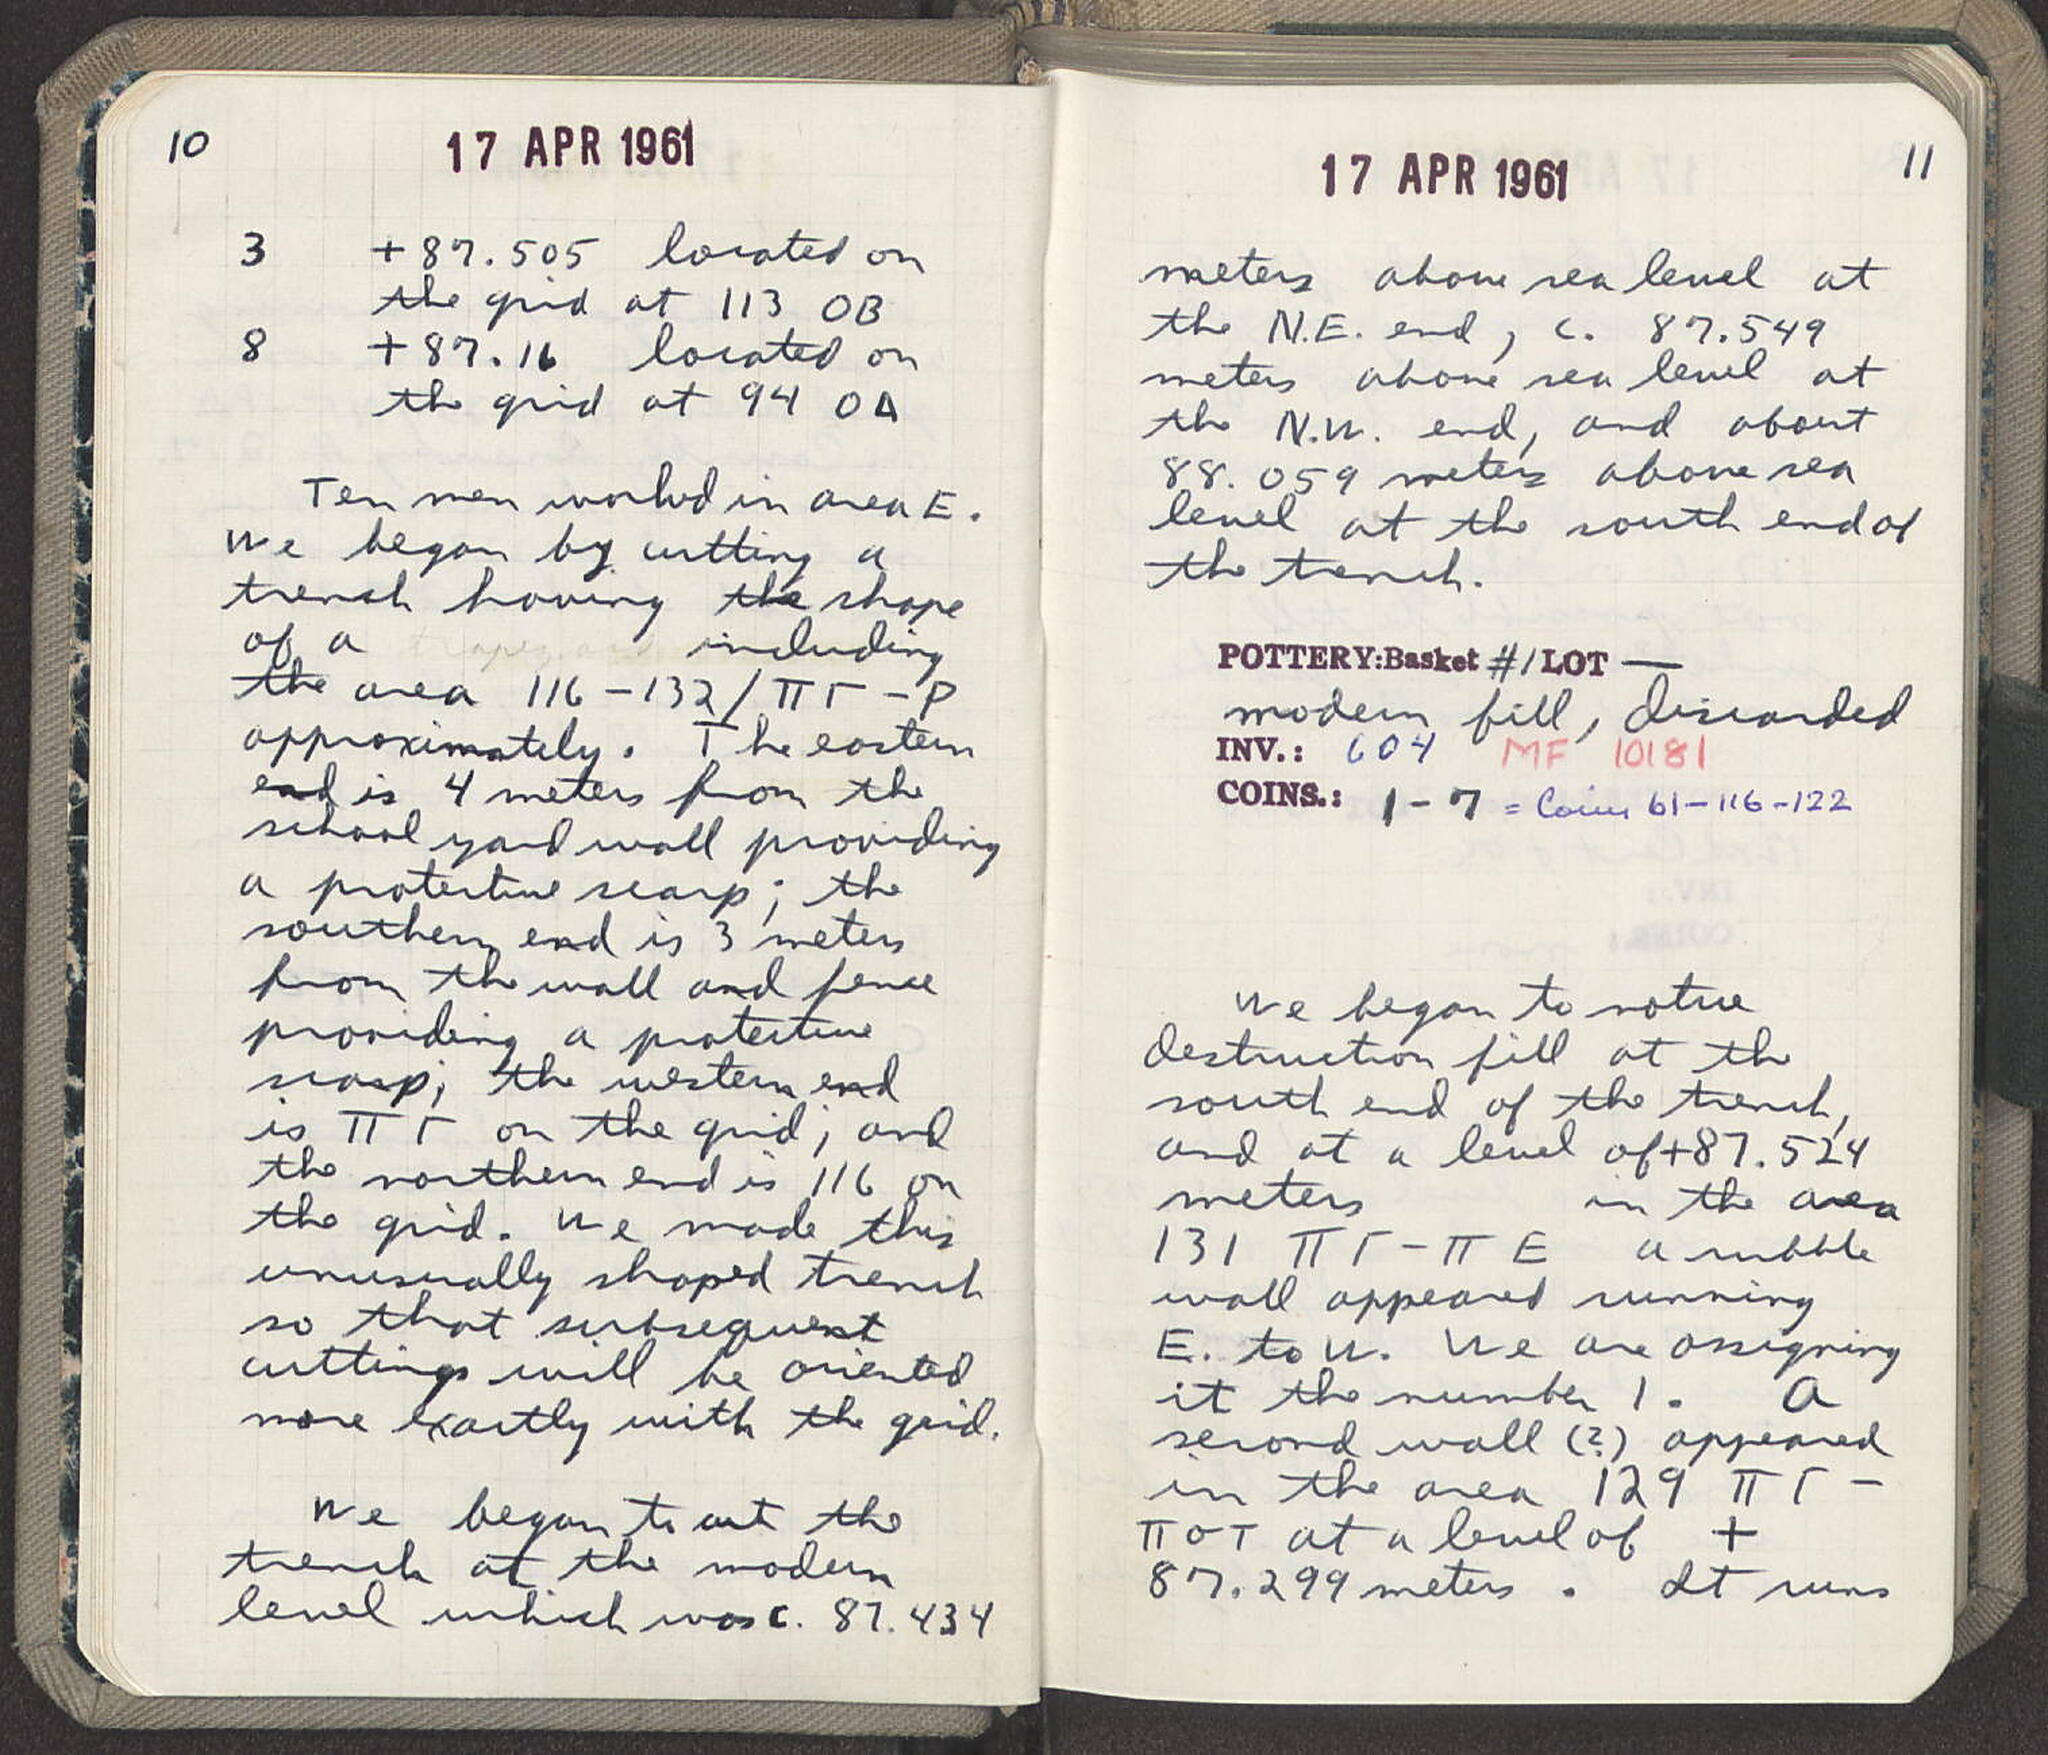 10
17 APR 1961
3 +87.505 located on
the grid at 113 OB
8 +87.16 located on
the grid at 94 OΔ
Ten men worked in area E.
We began by cutting a
trench having the shape
of a trapezoid including
the area 116-132/ΠΓ-P
approximately. The eastern
end is 4 meters from the
school yard wall providing
a protective scarp; the
southern end is 3 meters
from the wall and fence
providing a protective
scarp; the western end
is ΠΓ on the grid; and
the northern end is 116 on
the grid. We made this
unusually shaped trench
so that subsequent
cuttings will be oriented
more exactly with the grid.
We began to cut the
trench at the modern
level which was c. 87.434
11
17 APR 1961
meters above sea level at
the N.E. end, c. 87.549
meters above sea level at
the N.W. end, and about
88.059 meters above sea
level at the south end of
the trench.
POTTERY:Basket #1 LOT —
modern fill, discarded
INV.: 604 MF 10181
COINS.: 1-7 = Coins 61-116-122
We began to notice
destruction fill at the
south end of the trench,
and at a level of +87.524
meters in the area
131 ΠΓ-ΠE a rubble
wall appeared running
E. to W. We are assigning
it the number 1. A
second wall (?) appeared
in the area 129 ΠΓ-
ΠOT at a level of +
87.299 meters. It runs